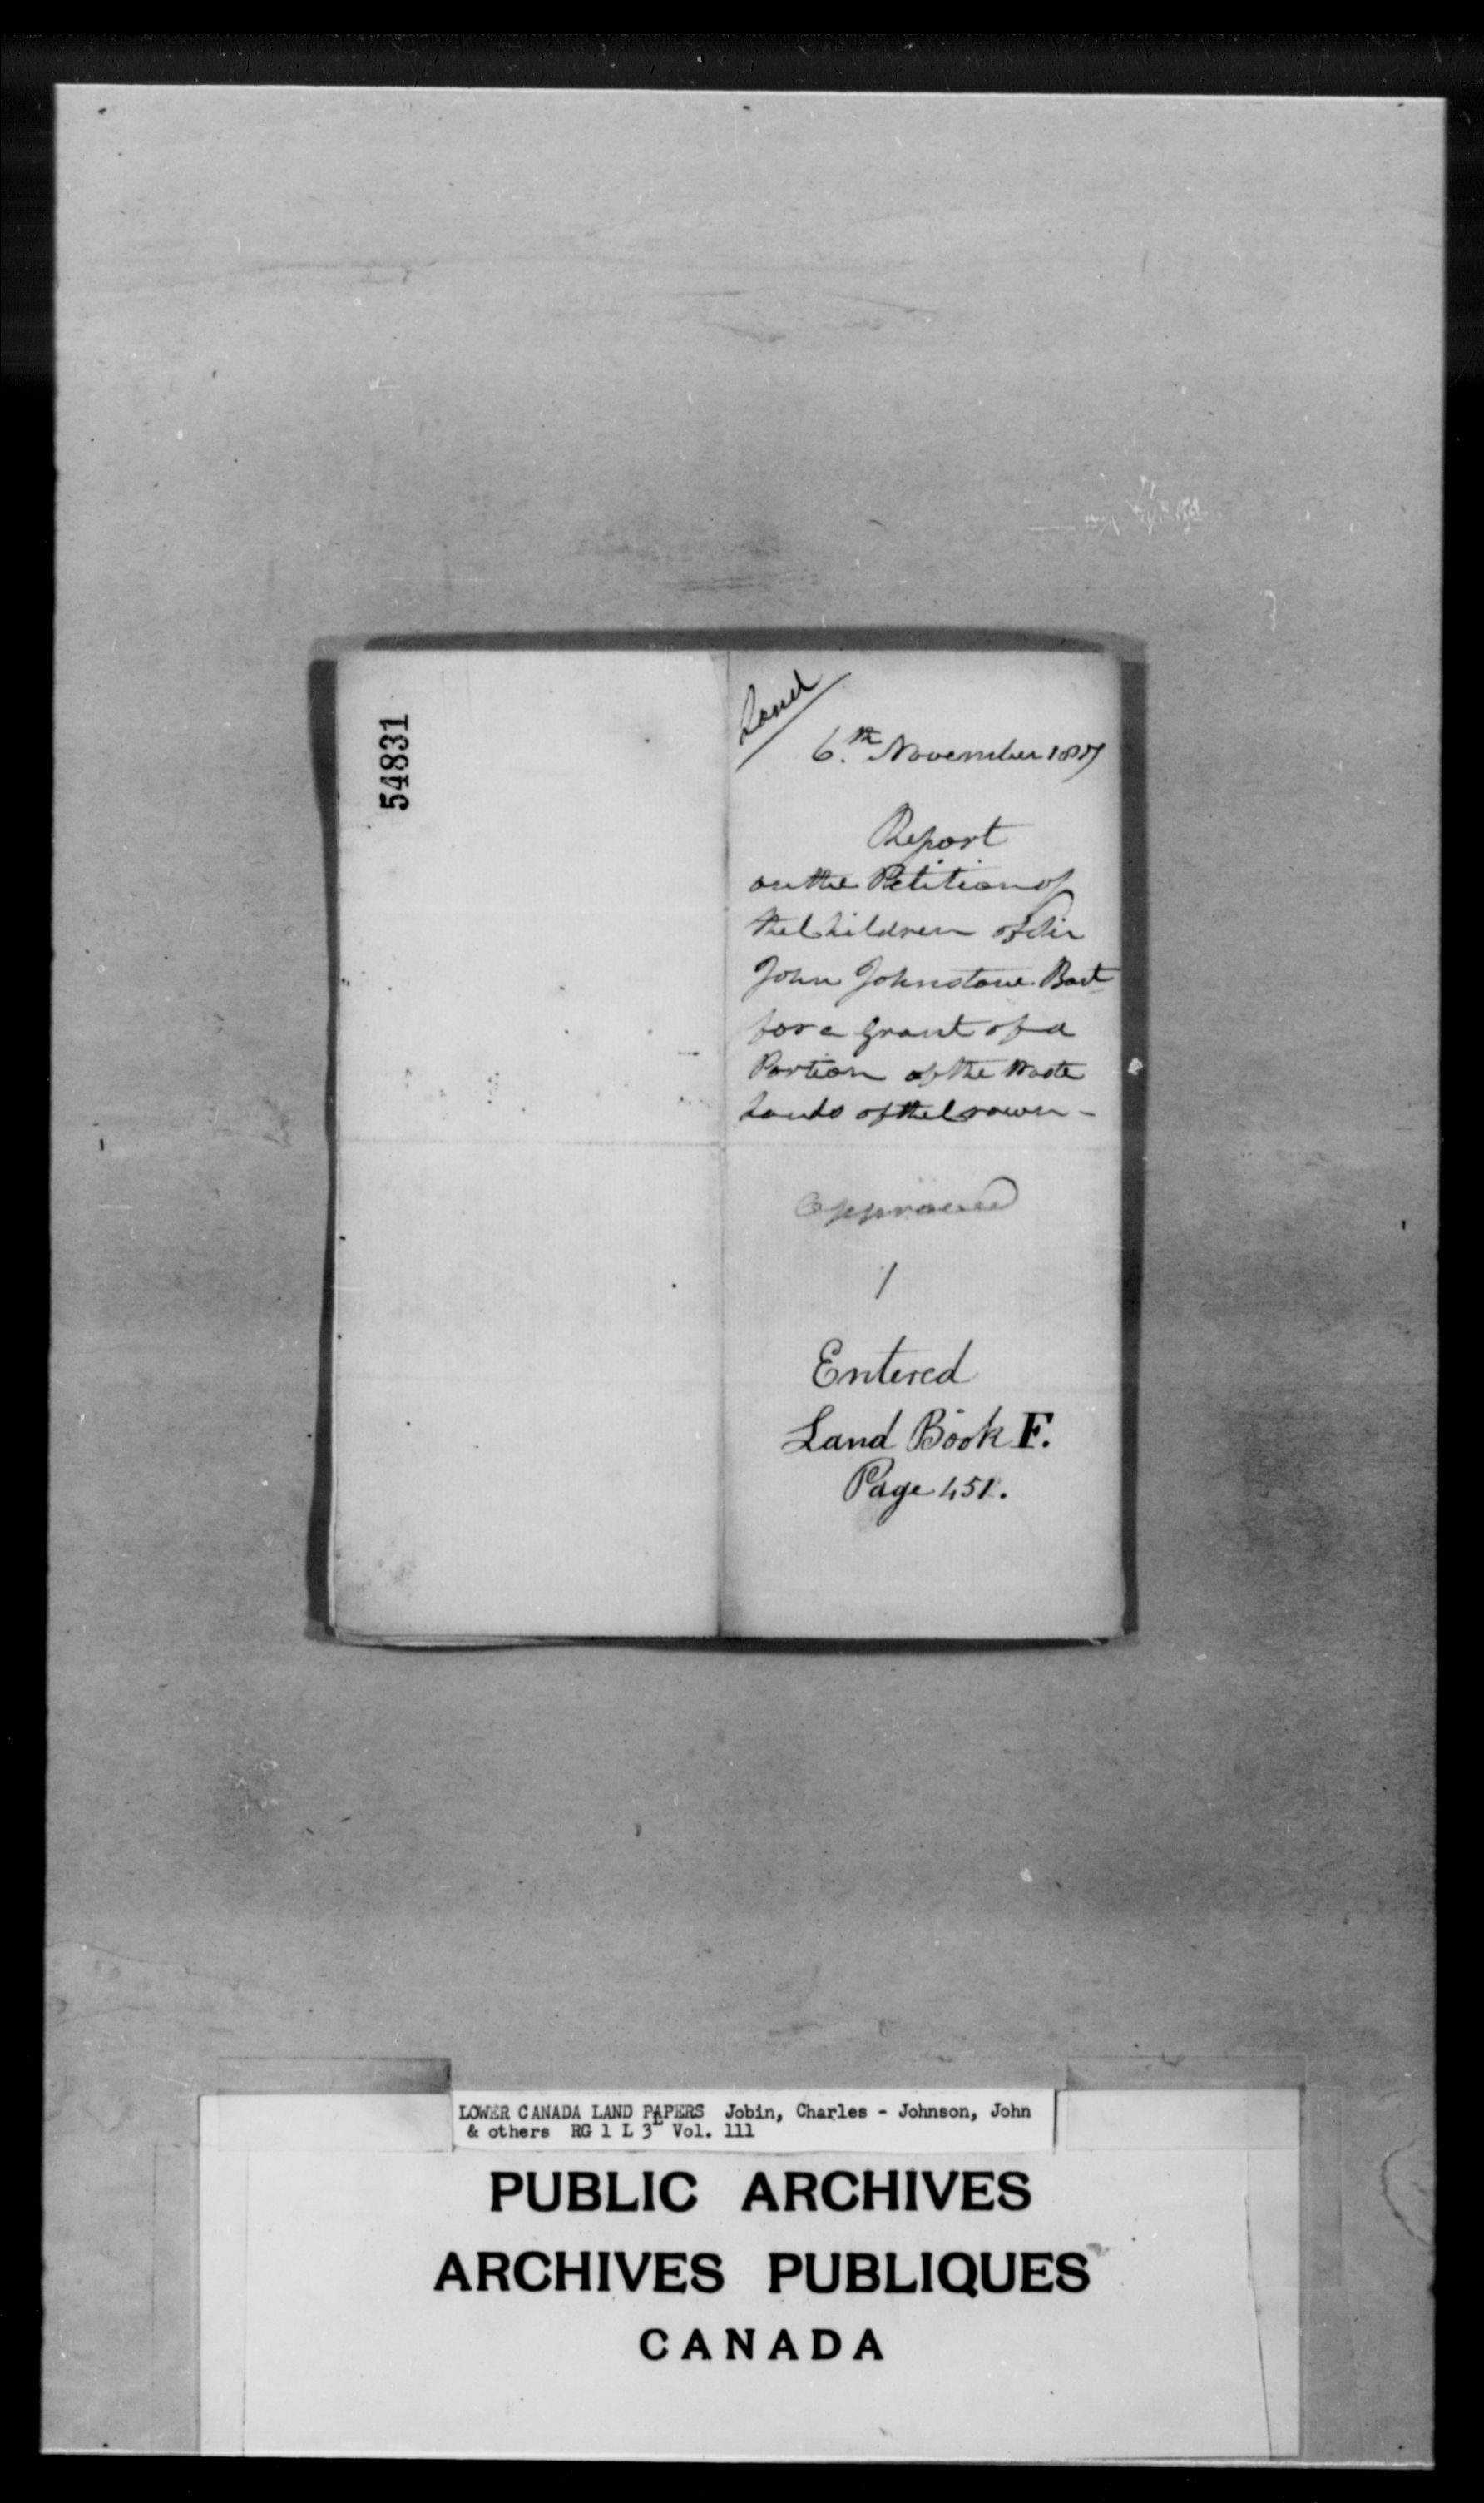 54831
Land
6.th November
Report
on the Petition of
the Children of Sir
John Johnstone Bart
for a Grant of a
Portion of the Waste
Lands of the Crown -
approved
1
Entered
Land Book F.
Page 451.
LOWER CANADA LAND PAPERS Jobin, Charles - Johnson, John
& others RG 1 L 3L Vol. 111
PUBLIC ARCHIVES
ARCHIVES PUBLIQUES
CANADA